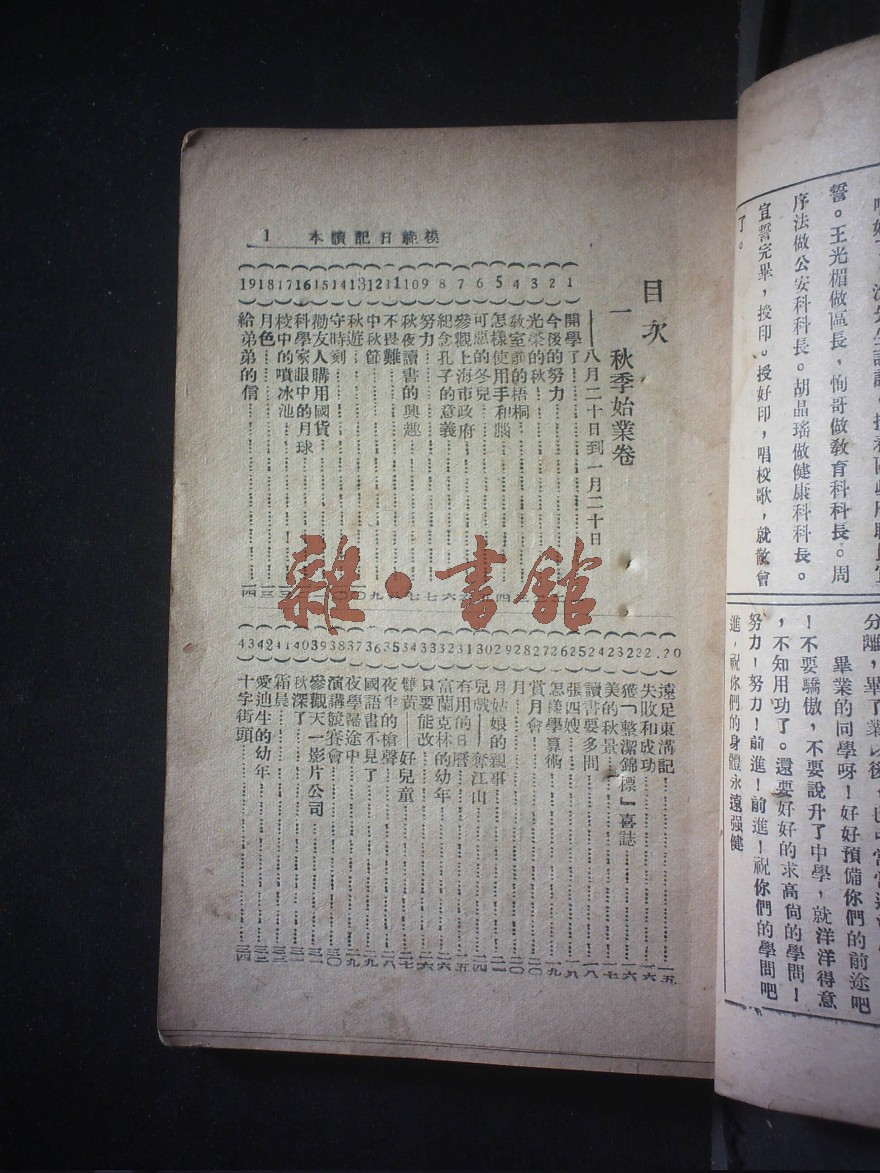 模範日記讀本 1
目次
一 秋季始業卷
——八月二十日到一月二十日
(1) 開學了
(2) 今後的努力
(3) 光榮的秋
(4) 教室前的梧桐
(5) 怎樣使用手和腦
(6) 可惡的冬兒
(7) 參觀上海市政府
(8) 紀念孔子的意義
(9) 努力
(10) 秋夜讀書的興趣
(11) 不畏難
(12) 中秋節
(13) 秋遊
(14) 守時刻
(15) 勸友人購用國貨
(16) 科學家眼中的月球
(17) 校中的噴冰池
(18) 月色
(19) 給弟弟的信 一四
(20) 遠足東溝記 一五
(21) 失敗和成功 一六
(22) 獲「整潔錦標」喜誌 一六
(23) 美的秋景 一七
(24) 讀書要多問 一八
(25) 張四嫂 一九
(26) 怎樣學算術 一九
(27) 賞月會 二〇
(28) 月 二〇
(29) 月姑娘的親事 二一
(30) 兒戲——奪江山 二四
(31) 有用的日曆 二五
(32) 富蘭克林的幼年 二六
(33) 只要能改 二六
(34) 雙黃——好兒童 二七
(35) 夜半的槍聲 二八
(36) 國語書不見了 二九
(37) 夜學歸途中 二九
(38) 演講競賽會 三〇
(39) 參觀天一影片公司 三一
(40) 秋深了 三二
(41) 霜晨 三三
(42) 愛迪生的幼年 三三
(43) 十字街頭 三四
雜·書館
誓。王光楣做區長,恂哥做敎育科科長。周
序法做公安科科長。胡晶瑤做健康科科長。
宣誓完畢,授印。授好印,唱校歌,就散會
了。
分離,畢了業以後,
畢業的同學呀!好好預備你們的前途吧
!不要驕傲,不要說升了中學,就洋洋得意
,不知用功了。還要好好的求高尙的學問!
努力!努力!前進!前進!祝你們的學問吧
進,祝你們的身體永遠强健